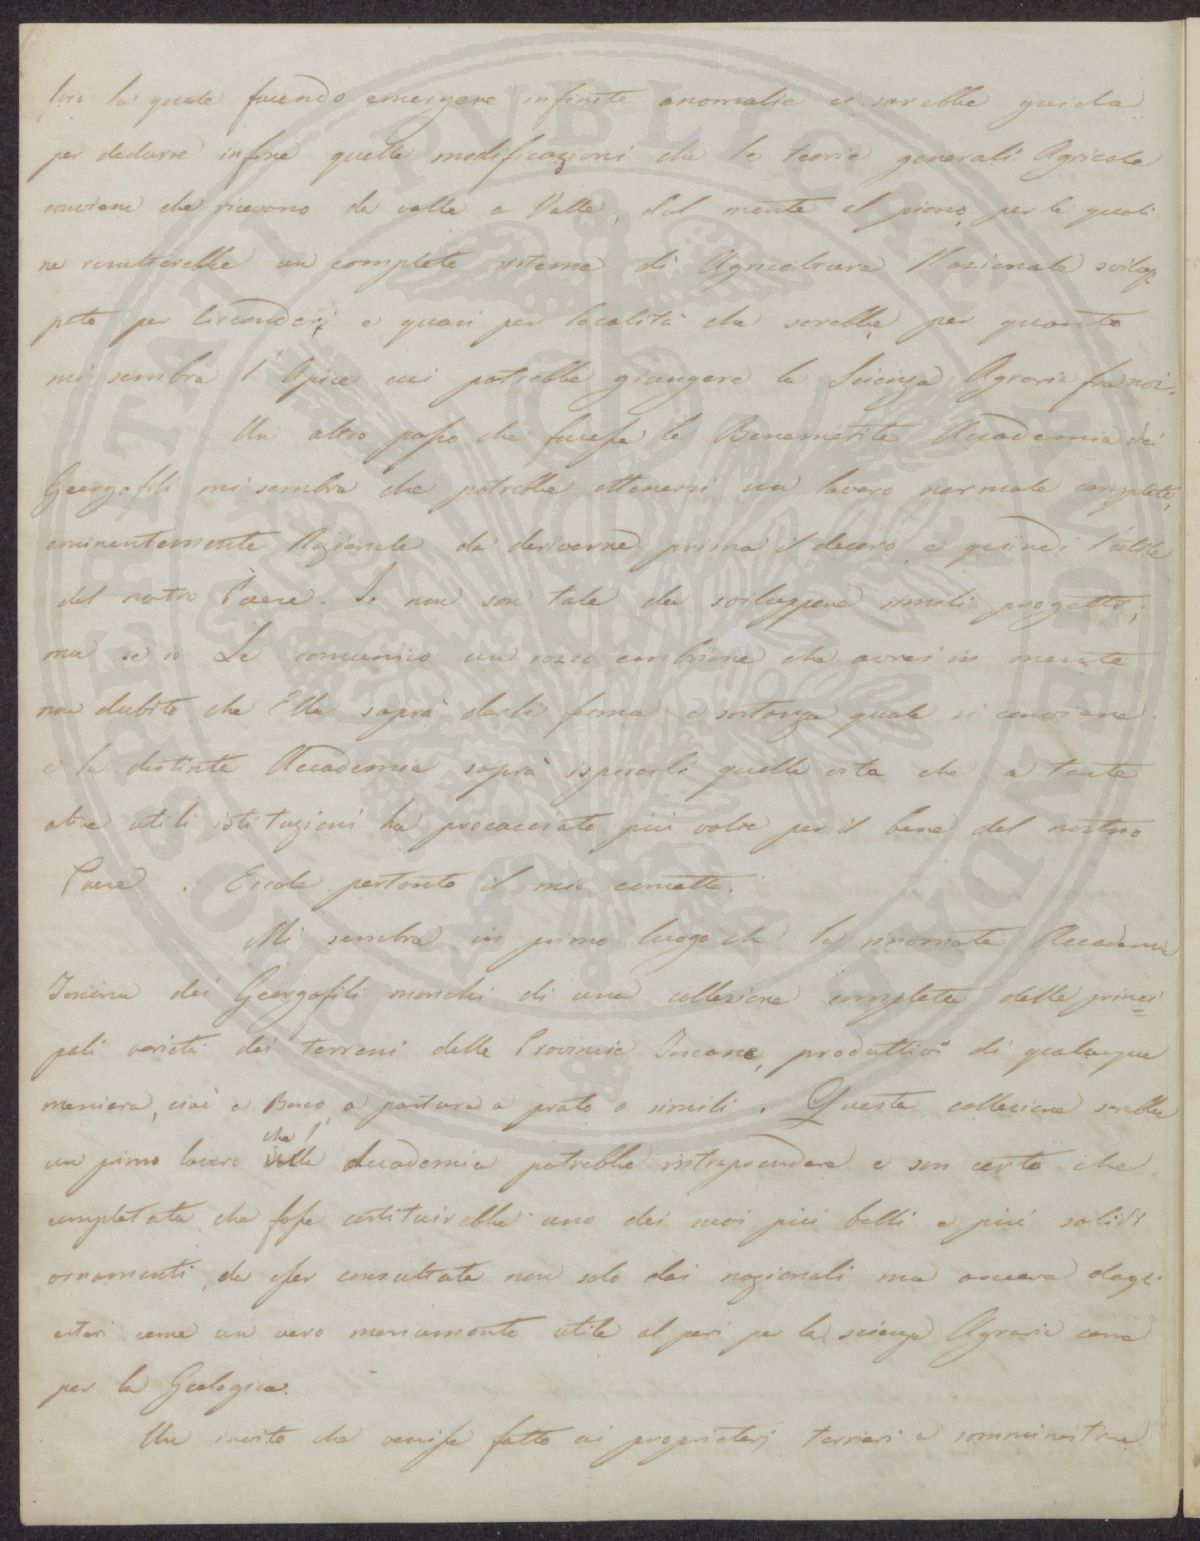 la quale facendo emergere infinite anomalie ci sarebbe guida
per dedurre infine quelle modificazioni che le teorie generali Agricole
conviene che ricevono da valle a Valle, dal monte al piano, per le quali
ne resulterebbe un completo sistema di Agricoltura Nazionale svilup=
pato per Circondarj e quasi per località che sarebbe, per quanto
mi sembra l'Apice cui potrebbe giungere la Scienza Agraria fra noi.
Un altro passo che facesse la Benemerita Accademia dei
Georgofili mi sembra che potrebbe ottenersi un lavoro normale completo,
eminentemente Nazionale da derivarne prima il decoro, e quindi l'utile
del nostro Paese. Io non son tale da sviluppare simili progetti;
ma se io Le comunico un rozzo embrione che avrei in mente
non dubito che Ella saprà darli forma e sostanza quale si conviene
e la distinta Accademia saprà ispirarli quella vita che a tante
altre utili istituzioni ha procacciato più volte per il bene del nostro
Paese. Eccole pertanto il mio concetto.
Mi sembra in primo luogo che la rinomata Accademia
Toscana dei Georgofili manchi di una collezione completa delle princi=
pali varietà dei terreni delle Provincie Toscane, produttivi di qualunque
maniera, cioè a Bosco, a pastura a prato o simili. Questa collezione sarebbe
che l'
un primo lavoro Accademia potrebbe intraprendere e son certo che
completata che fosse costituirebbe uno dei suoi più belli e più solidi
ornamenti, da esser consultata non solo dai nazionali ma ancora dagli
esteri come un vero monumento utile al pari per la scienza Agraria come
per la Geologica.
Un invito che venisse fatto ai proprietarj terrieri a somministrare